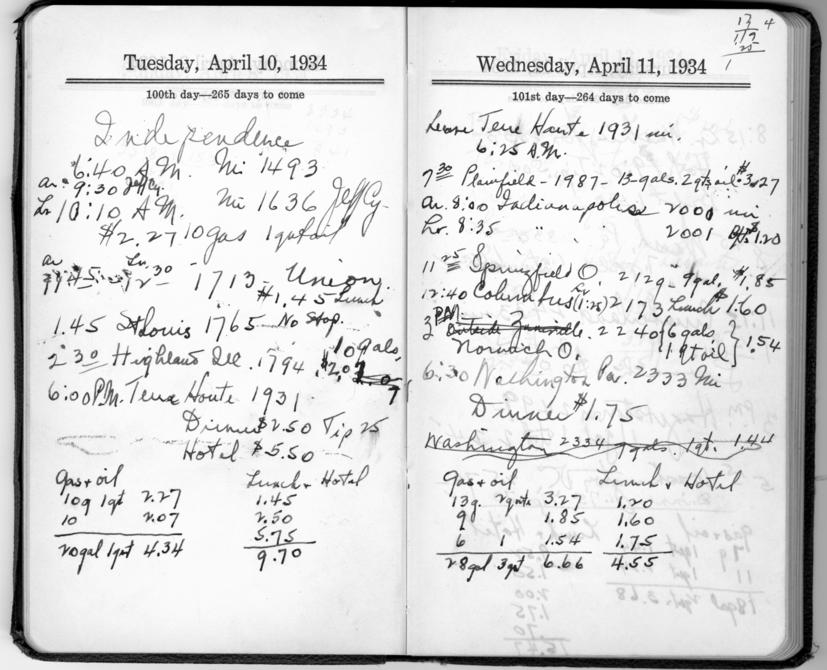 Tuesday, April 10, 1934
100th day—265 days to come
Independence
6:40 A.M. Mi 1493
ar. 9:30 Jeff Cy.
Lv 10:10 A.M. Mi 1636 Jeff Cy.
$2.27 10 gas 1 qt oil
ar 11:45 Lv. 12:30 1713 - Union
$1.45 Lunch
1.45 St Louis 1765 - No Stop.
2:30 Highland Ill. 1794 10 gals.
$2.07
6:00 P.M. Terre Haute 1931
Dinner $2.50 Tip 25
Hotel $5.50
Gas & oil Lunch & Hotel
10g 1qt 2.27 1.45
10 2.07 2.50
5.75
20 gal 1qt 4.34 9.70
13 4
Wednesday, April 11, 1934
101st day—264 days to come
Leave Terre Haute 1931 mi.
6:25 A.M.
7:30 Plainfield - 1987 - 13-gals. 2 qts oil $3.27
Ar. 8:00 Indianapolis 2000 mi
Lv. 8:35 " " 2001 $1.20
11:25 Springfield O. 2129 - 9 gal. $1.85
12:40 Columbus Lv (1:25) 2173 Lunch $1.60
3 P.M. Outside Zanesville. 2240 {6 gals,
Norwich O. {1 qt oil} 1.54
6:30 Washington Pa. 2333 Mi
Dinner $1.75
Washington 2334 9 gals. 1 qt. 1.44
Gas & oil Lunch & Hotel
13g. 2 qts 3.27 1.20
9 1.85 1.60
6 1 1.54 1.75
28 gal 3 qt 6.66 4.55